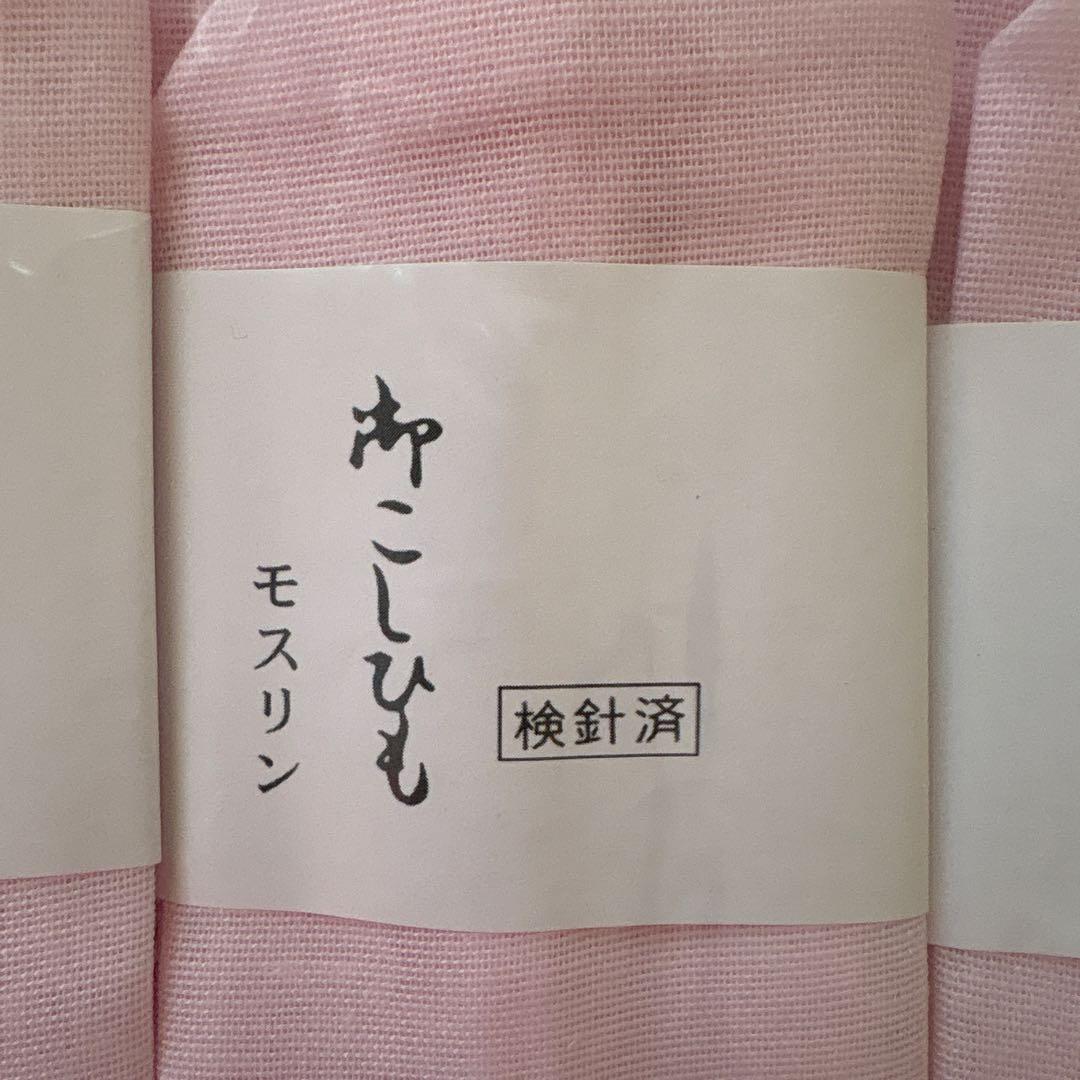 御こしひも
モスリン
検針済